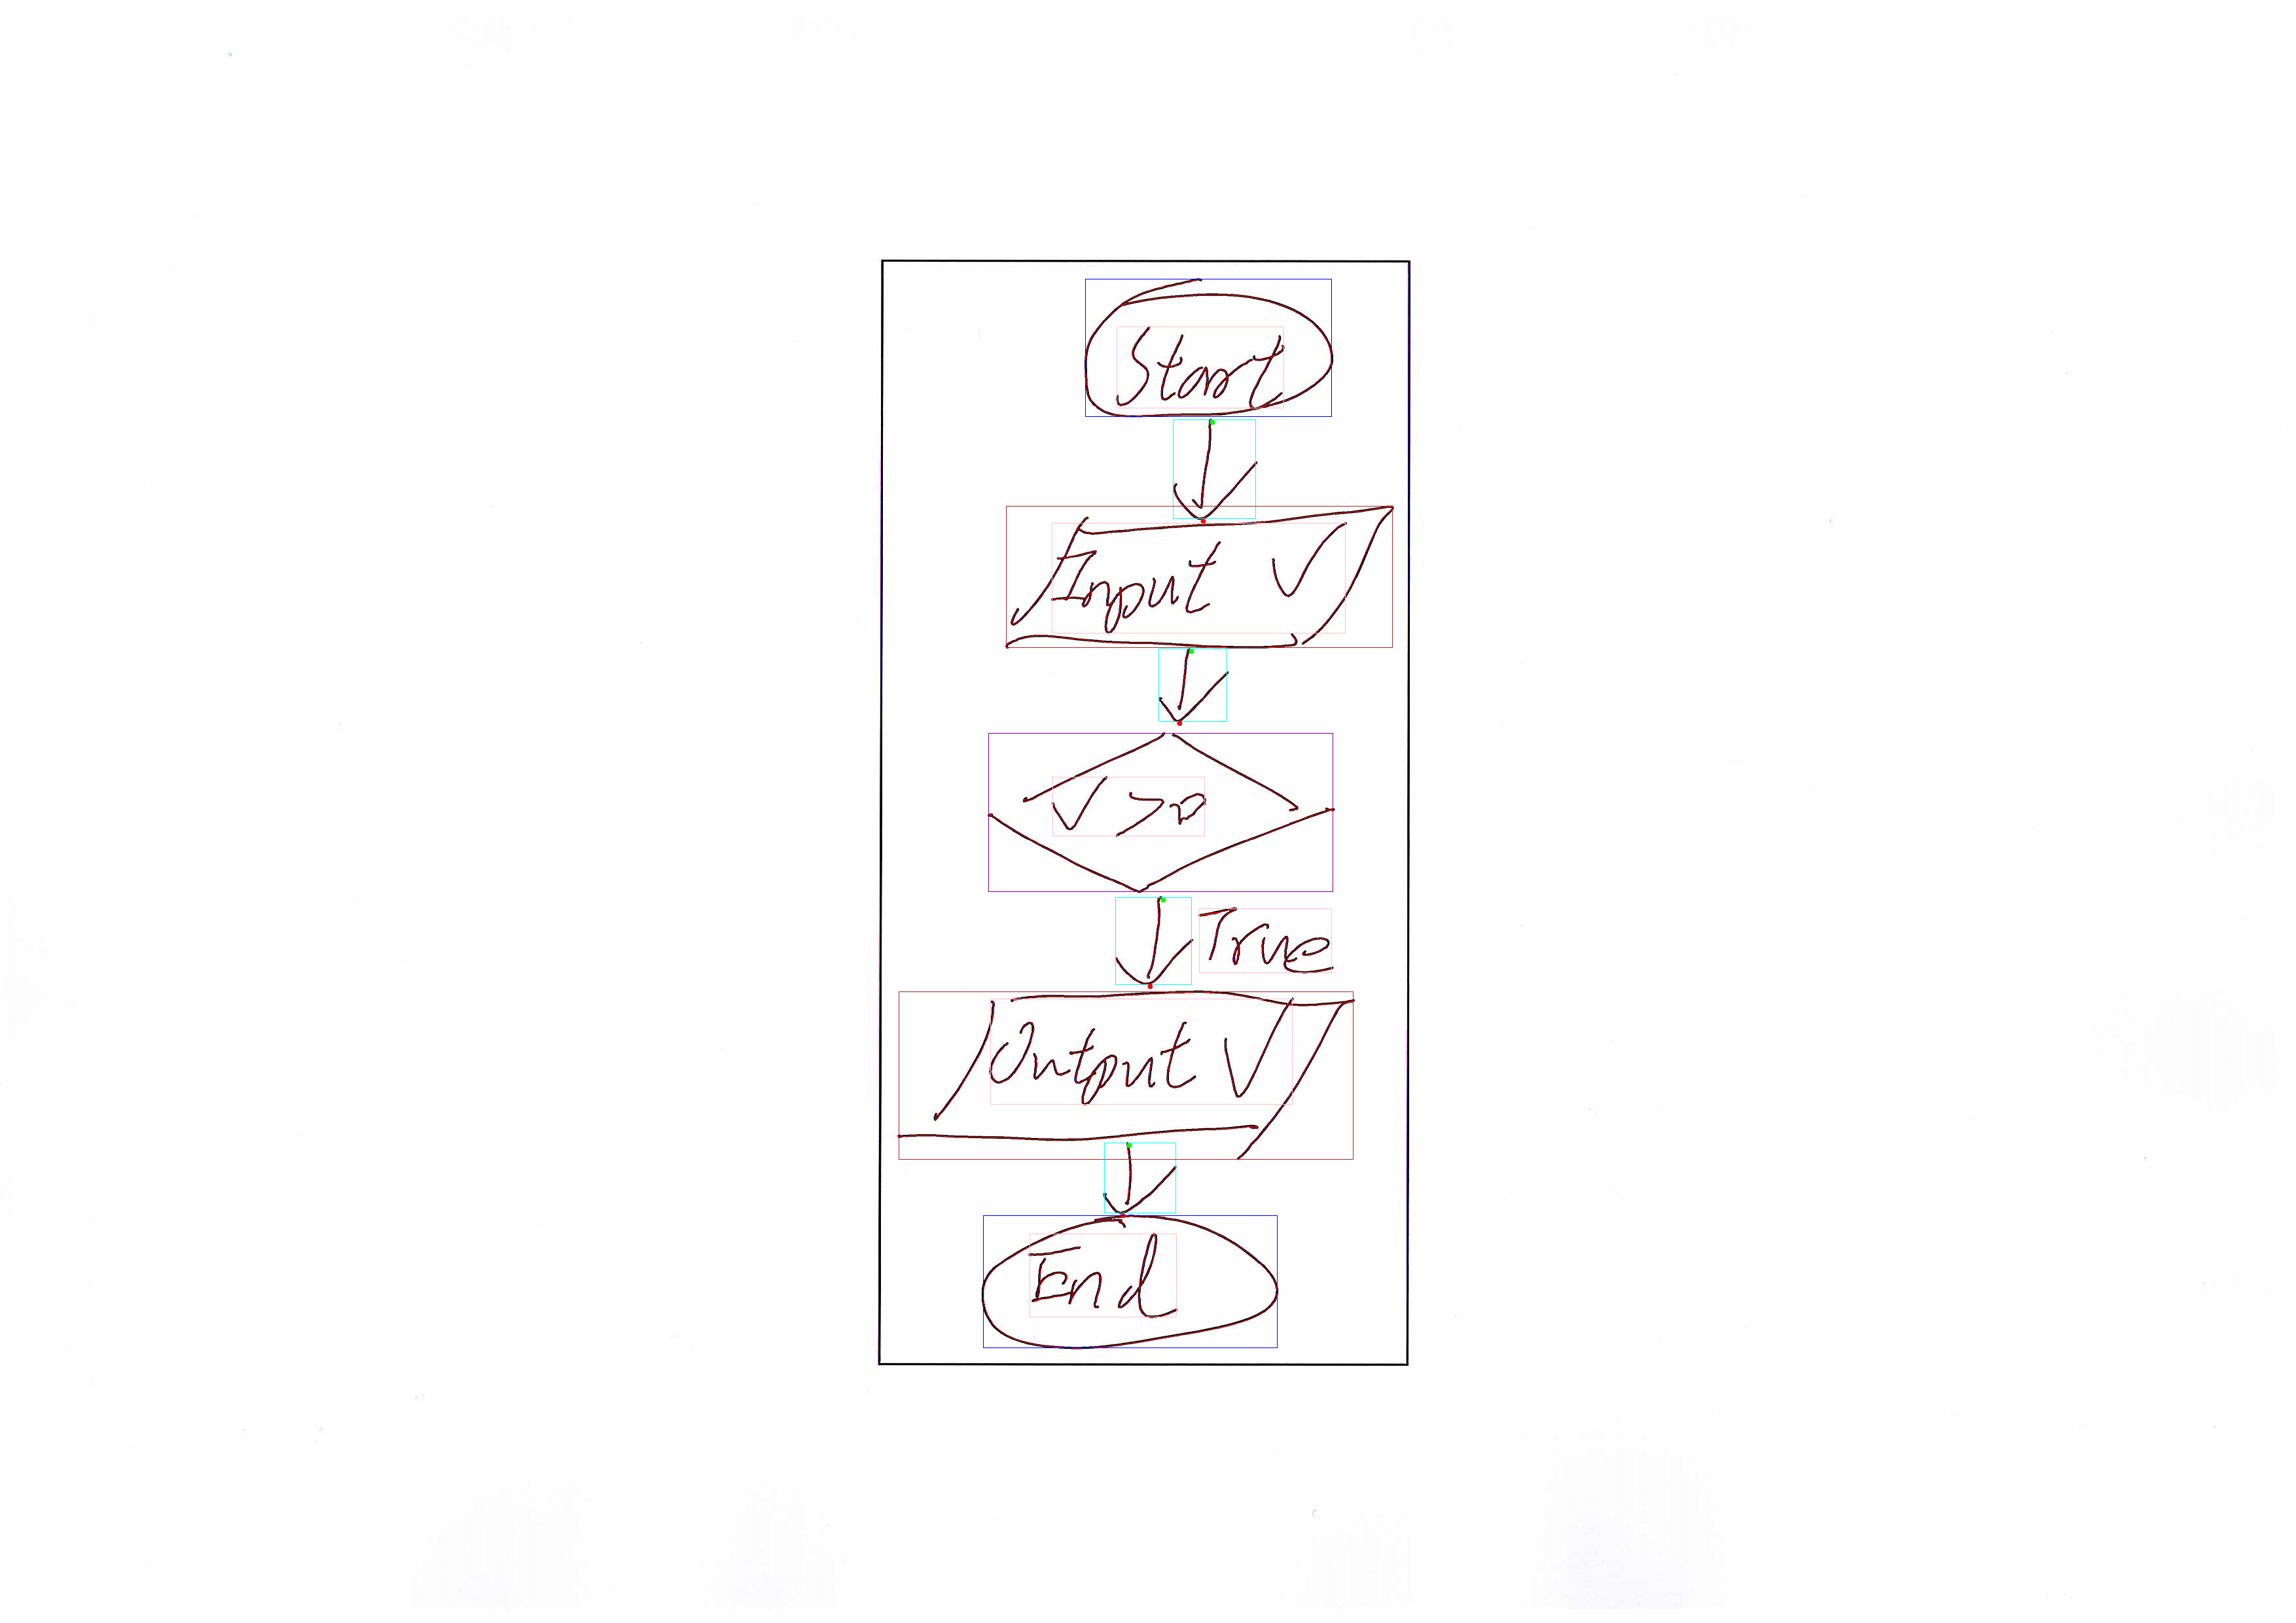 Start
Input V
V >0
True
Output V
End